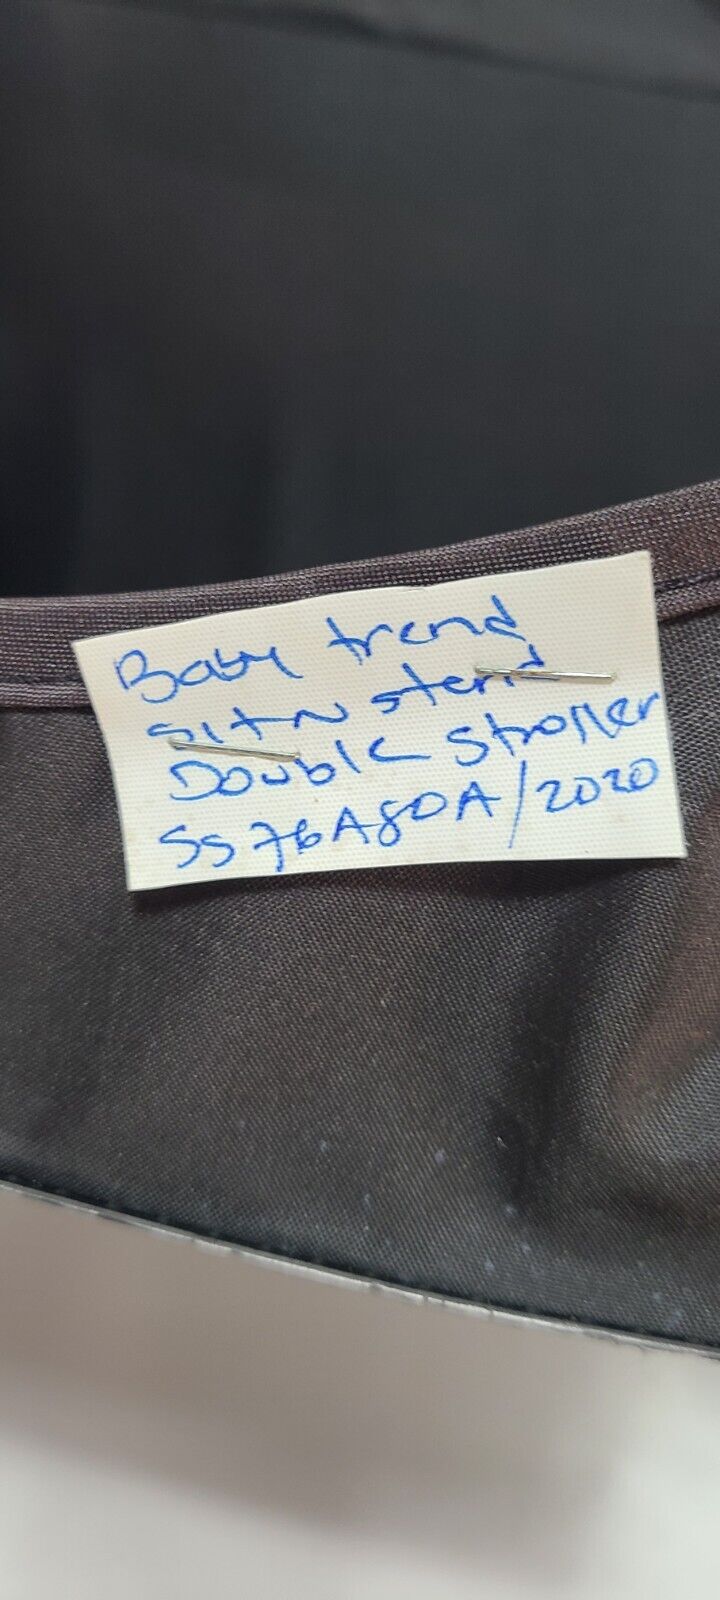 Baby trend
sit N stend
Double Stroller
SS76A80A/2020